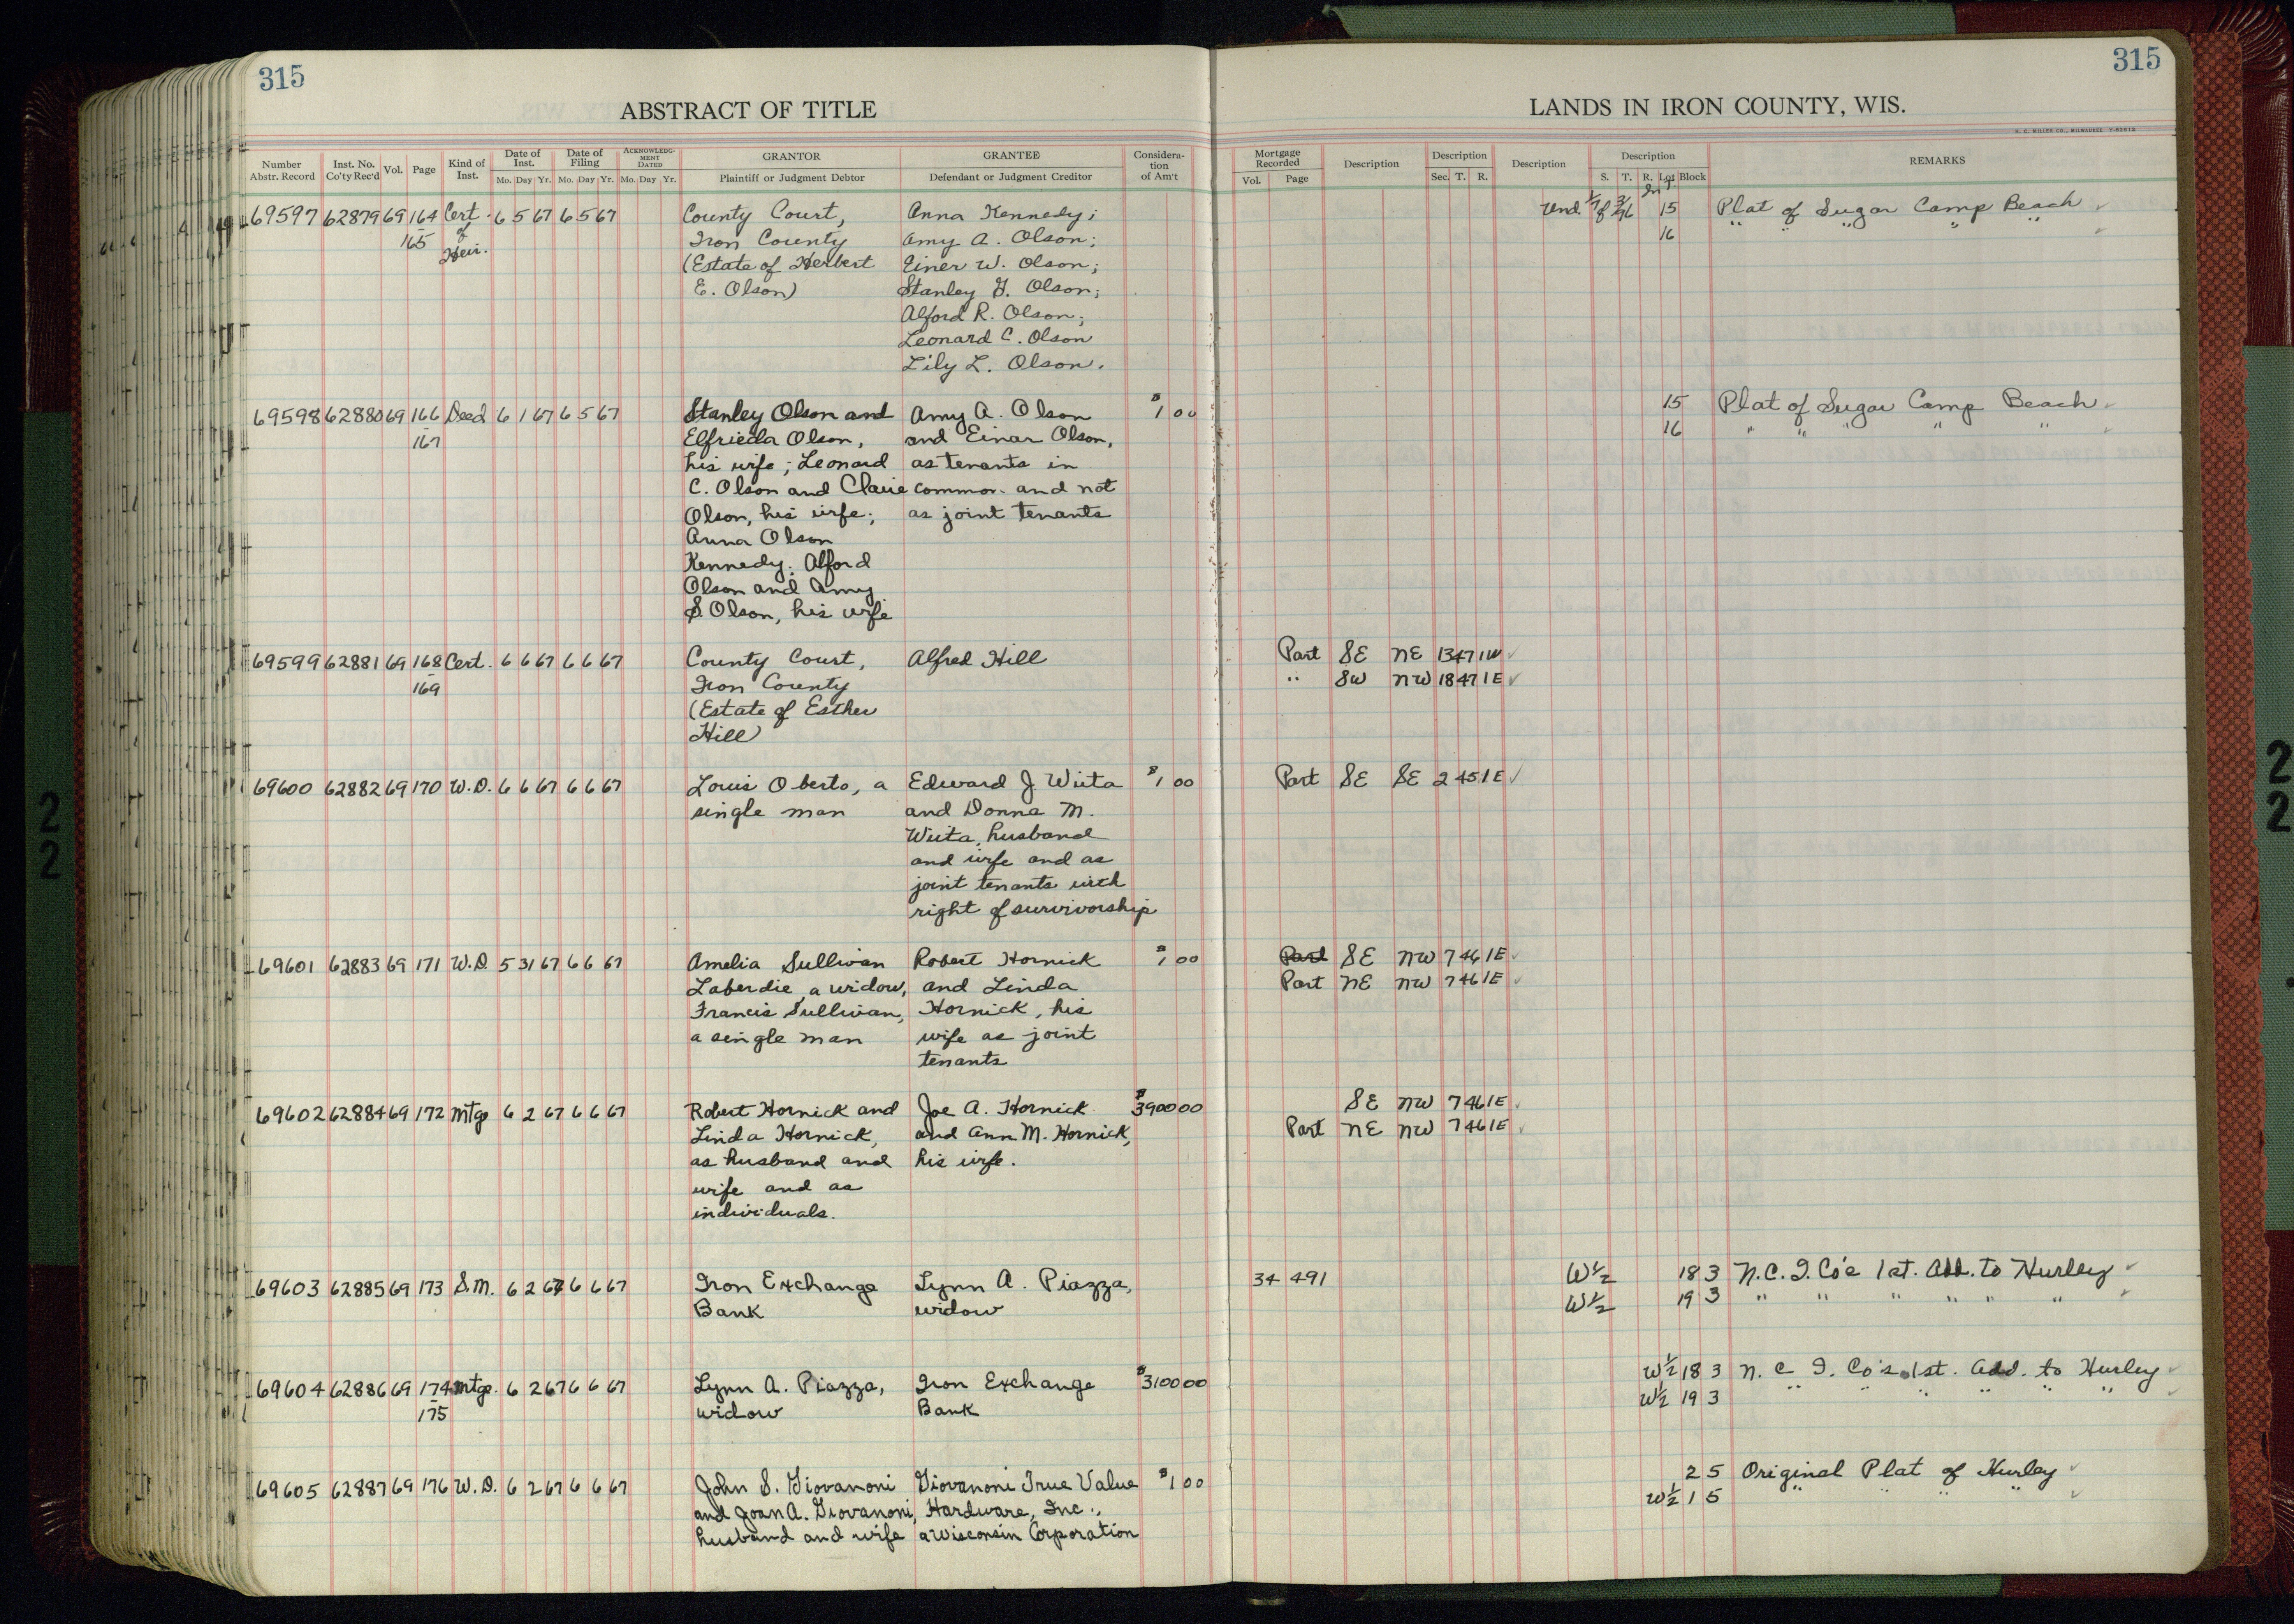 315
315
ABSTRACT OF TITLE
LANDS IN IRON COUNTY, WIS.
H. C. MILLER CO., MILWAUKEE
Number Abstr. Record
Inst. No. Co'ty Rec'd
Vol.
Page
Kind of Inst.
Date of Inst.
Mo. Day Yr.
Date of Filing
Mo. Day Yr.
ACKNOWLEDG-MENT DATED
Mo. Day Yr.
GRANTOR
Plaintiff or Judgment Debtor
GRANTEE
Defendant or Judgment Creditor
Considera-tion of Am't
Mortgage Recorded
Vol. Page
Description
Description
Sec. T. R.
Description
Description
S. T. R. Lot Block
REMARKS
69597 62879 69 164 Cert. 6 5 67 6 5 67 County Court, Anna Kennedy; Und. 15 Plat of Sugar Camp Beach
165 of Iron County Amy A. Olson; 16 " " " " "
Heir. (Estate of Herbert Einer W. Olson;
E. Olson) Stanley G. Olson;
Alford R. Olson;
Leonard C. Olson
Lily L. Olson.
69598 62880 69 166 Deed 6 1 67 6 5 67 Stanley Olson and Amy A. Olson $1 00 15 Plat of Sugar Camp Beach
167 Elfrieda Olson, and Einar Olson, 16 " " " " "
his wife; Leonard as tenants in
C. Olson and Claire common and not
Olson, his wife; as joint tenants
Anna Olson
Kennedy; Alford
Olson and Amy
S. Olson, his wife
69599 62881 69 168 Cert. 6 6 67 6 6 67 County Court, Alfred Hill Part SE NE 13 47 1W
169 Iron County " SW NW 18 47 1E
(Estate of Esther
Hill)
69600 62882 69 170 W.D. 6 6 67 6 6 67 Louis Oberto, a Edward J. Wiita $1 00 Part SE SE 2 45 1E
single man and Donna M.
Wiita, husband
and wife and as
joint tenants with
right of survivorship
69601 62883 69 171 W.D. 5 31 67 6 6 67 Amelia Sullivan Robert Hornick $1 00 Part SE NW 7 46 1E
Laberdie, a widow, and Linda Part NE NW 7 46 1E
Francis Sullivan, Hornick, his
a single man wife as joint
tenants
69602 62884 69 172 Mtge 6 2 67 6 6 67 Robert Hornick and Joe A. Hornick $3900 00 SE NW 7 46 1E
Linda Hornick, and Ann M. Hornick, Part NE NW 7 46 1E
as husband and his wife.
wife and as
individuals.
69603 62885 69 173 S.M. 6 2 67 6 6 67 Iron Exchange Lynn A. Piazza, 34 491 W½ 18 3 N.C.I. Co's 1st. Add. to Hurley
Bank widow W½ 19 3 " " " " " "
69604 62886 69 174 Mtge. 6 2 67 6 6 67 Lynn A. Piazza, Iron Exchange $3100 00 W½ 18 3 N. C. I. Co's 1st. Add. to Hurley
175 widow Bank W½ 19 3 " " " " " "
69605 62887 69 176 W.D. 6 2 67 6 6 67 John S. Giovanoni Giovanoni True Value $1 00 2 5 Original Plat of Hurley
and Joan A. Giovanoni, Hardware, Inc., W½ 1 5 " " " "
husband and wife a Wisconsin Corporation
2
2
2
2